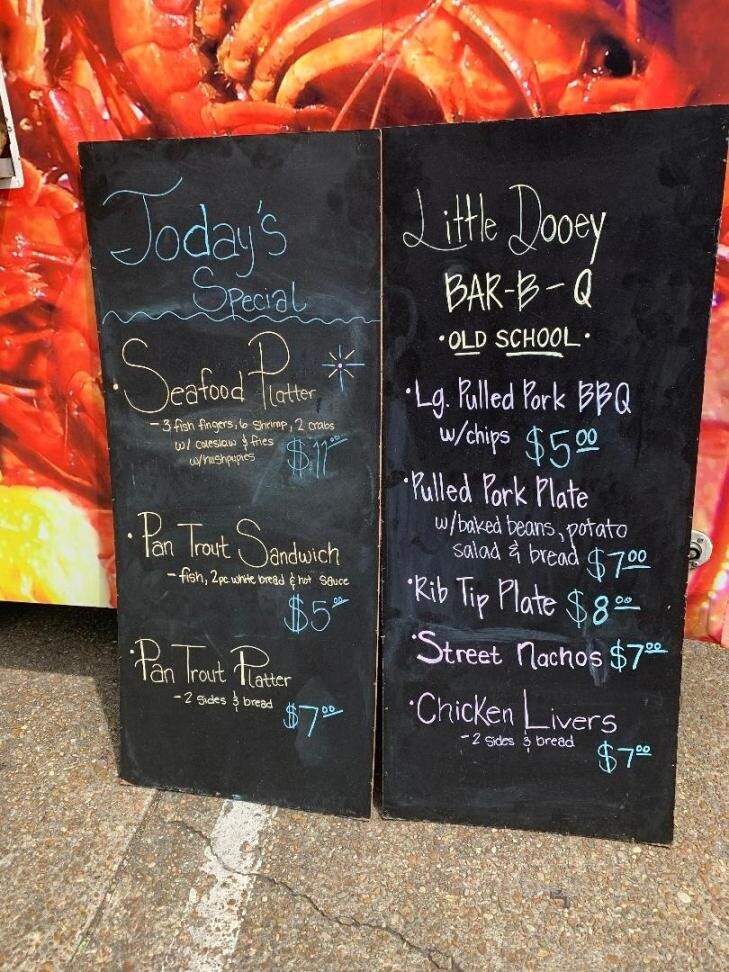 Today's
Special
• Seafood Platter
- 3 fish fingers, 6 shrimp, 2 crabs
w/ coleslaw & fries
w/hushpupies
$11.00
• Pan Trout Sandwich
- fish, 2pc white bread & hot sauce
$5.00
• Pan Trout Platter
- 2 sides & bread
$7.00
Little Dooey
BAR-B-Q
• OLD SCHOOL •
• Lg. Pulled Pork BBQ
w/chips $5.00
• Pulled Pork Plate
w/baked beans, potato
salad & bread $7.00
• Rib Tip Plate $8.00
• Street Nachos $7.00
• Chicken Livers
- 2 sides & bread
$7.00